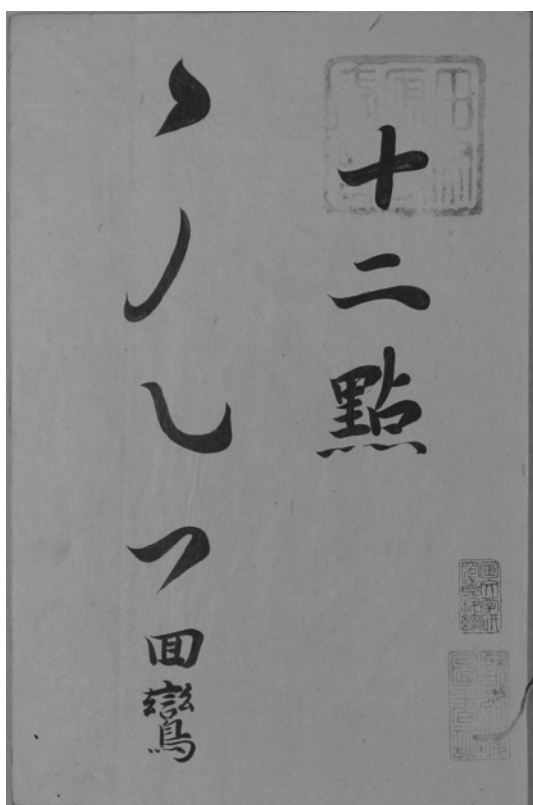 十二點
丶ノ乚フ回鸞